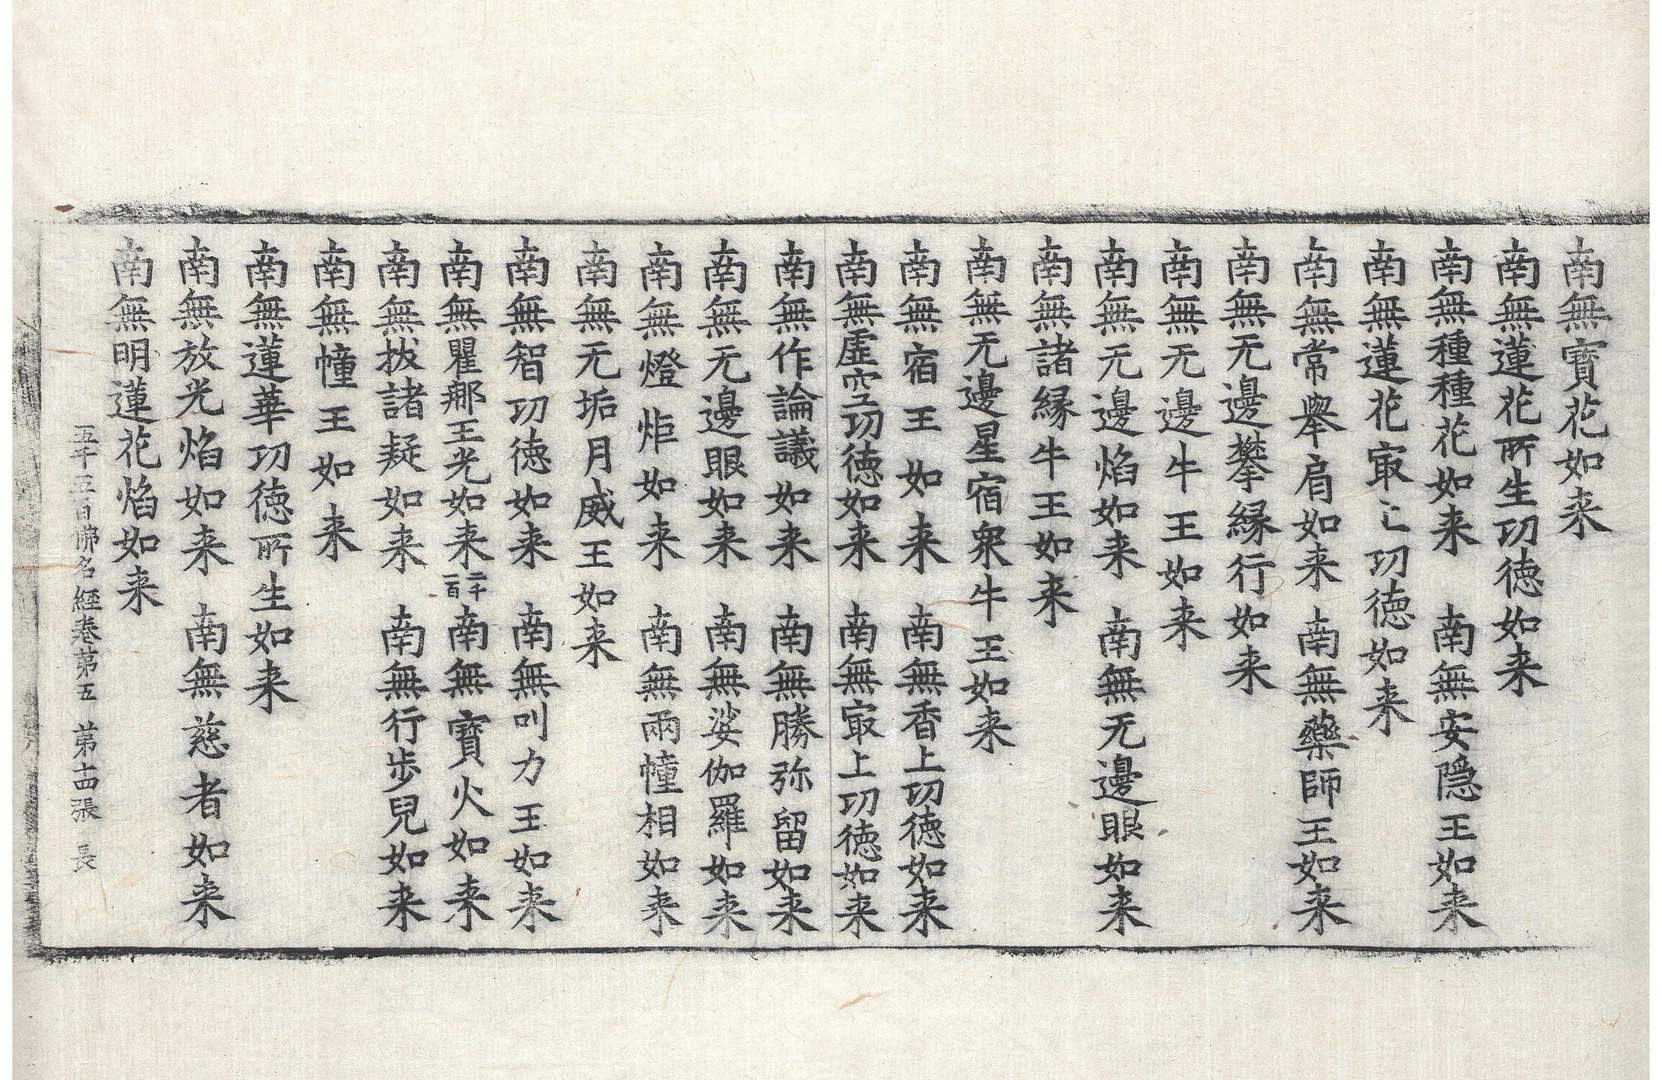 南無寶花如来
南無蓮花所生功徳如来
南無種種花如来　南無安隱王如来
南無蓮花㝡上功徳如来
南無常舉肩如来　南無藥師王如来
南無无邊攀緣行如来
南無无邊牛王如来
南無无邊焰如来　南無无邊眼如来
南無諸縁牛王如来
南無无邊星宿衆牛王如来
南無宿王如来　南無香上功徳如来
南無虚空功徳如来　南無㝡上功徳如来
南無作論議如来　南無勝弥留如来
南無无邊眼如来　南無娑伽羅如来
南無燈炬如来　南無雨幢相如来
南無无垢月威王如来
南無智功徳如来　南無叫力王如来
南無瞿郍王光如来二千一百　南無寶火如来
南無拔諸疑如来　南無行步皃如来
南無幢王如来
南無蓮華功徳所生如来
南無放光焰如来　南無慈者如来
南無明蓮花焰如来
五千五百佛名經卷第五　第十四張　長